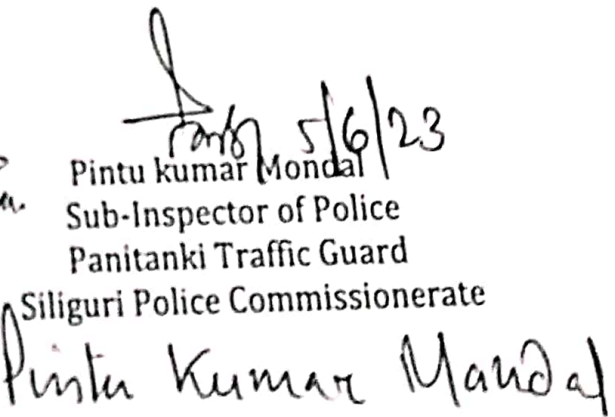 5/6/23
Pintu kumar Mondal
Sub-Inspector of Police
Panitanki Traffic Guard
Siliguri Police Commissionerate
Pintu Kumar Mandal